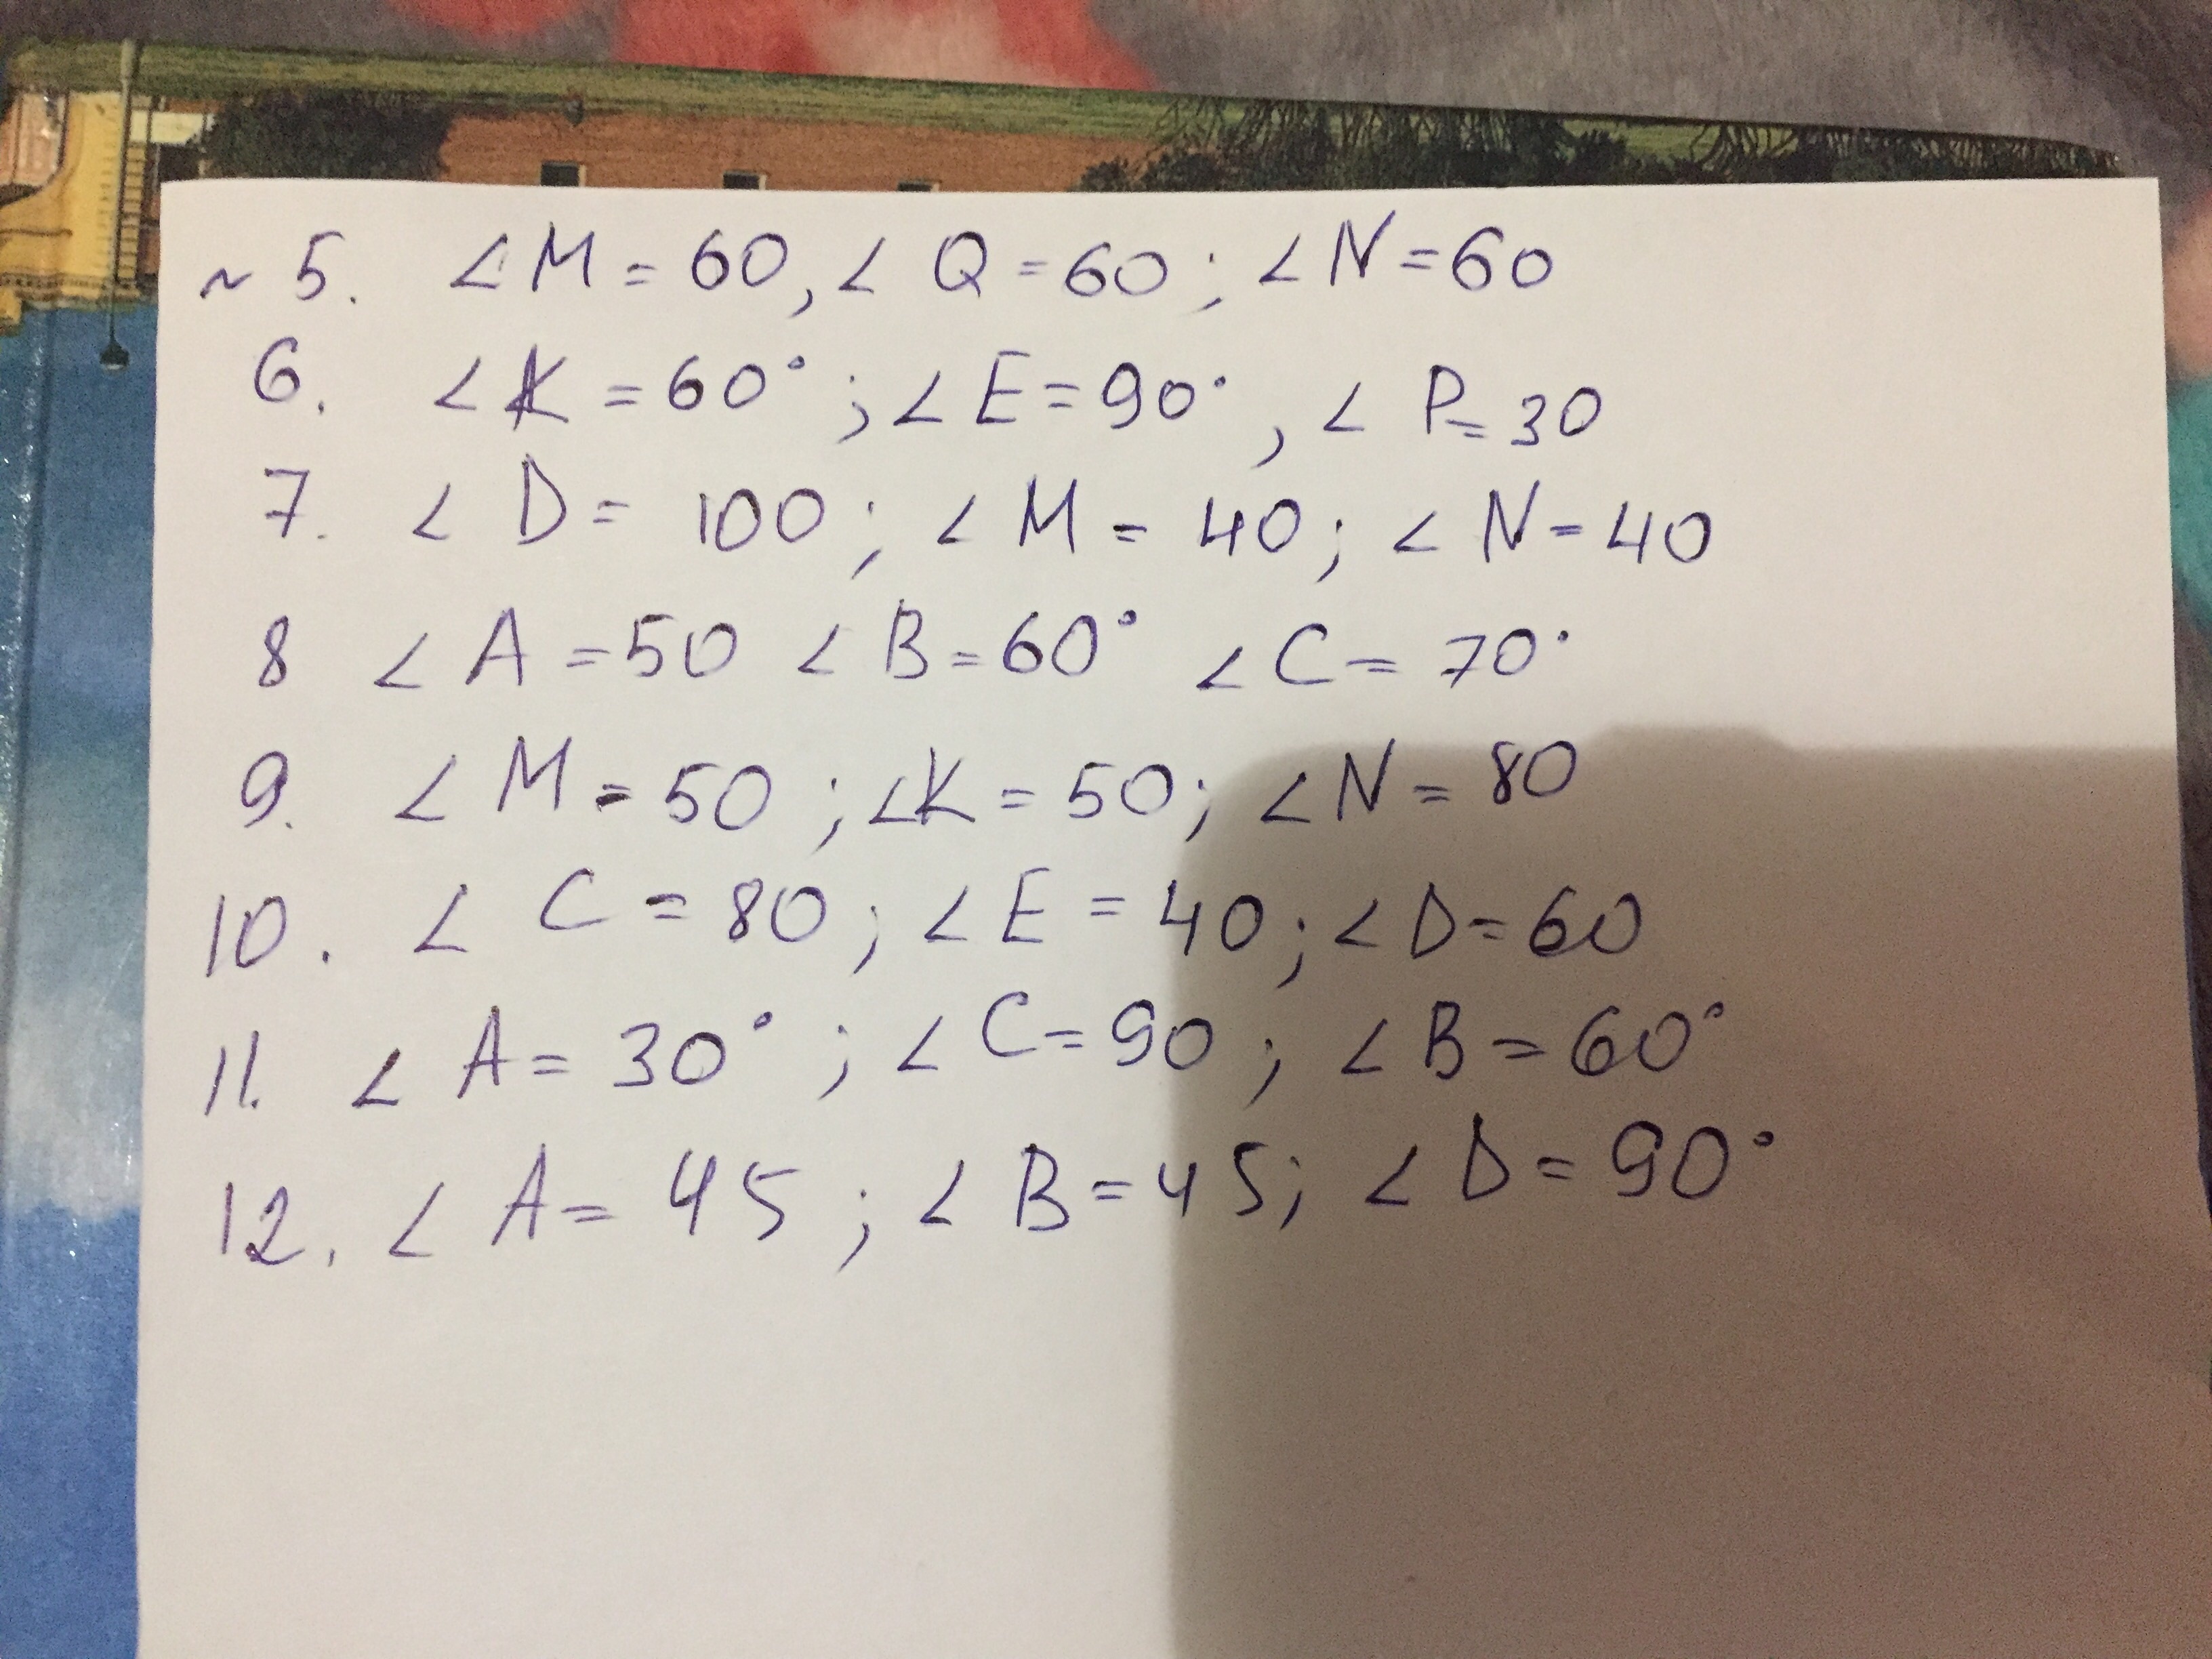 ~ 5. ∠ M = 60, ∠ Q = 60; ∠ N = 60
6. ∠ K = 60° ; ∠ E = 90° , ∠ P = 30
7. ∠ D = 100 ; ∠ M = 40; ∠ N = 40
8 ∠ A = 50 ∠ B = 60° ∠ C = 70°
9. ∠ M = 50 ; ∠K = 50; ∠ N = 80
10. ∠ C = 80; ∠ E = 40; ∠ D = 60
11. ∠ A = 30° ; ∠ C = 90 ; ∠ B = 60°
12. ∠ A = 45 ; ∠ B = 45; ∠ D = 90°